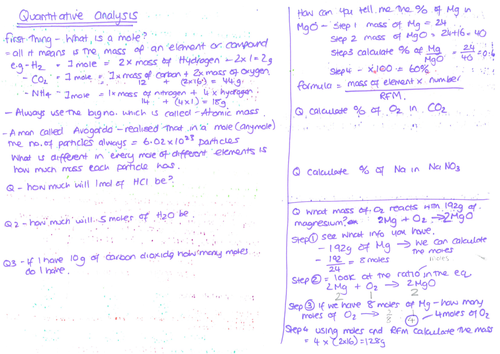 Quantitative Analysis
First thing - What is a mole?
= all it means is the mass of an element or compound
e.g - H2 = 1 mole = 2 x mass of Hydrogen = 2x1 = 2g
- CO2 = 1 mole = 1x mass of carbon + 2x mass of oxygen
12 + (2x16) = 44g
- NH4 = 1 mole = 1x mass of nitrogen + 4x hydrogen
14 + (4x1) = 18g
- Always use the big no. which is called - Atomic mass.
- A man called Avogadro - realised that in a mole (any mole)
the no. of particles always = 6.02 x 10^23 particles
What is different in every mole of different elements is
how much mass each particle has.
Q - how much will 1 mol of HCl be?
Q2 - how much will 5 moles of H2O be
Q3 - if I have 10g of carbon dioxide how many moles
do I have.
How can you tell me the % of Mg in
MgO - Step 1 mass of Mg = 24
Step 2 mass of MgO = 24+16 = 40
Step 3 calculate % of Mg/MgO = 24/40 = 0.6
Step 4 - x 100 = 60%
formula = mass of element x number
RFM.
Q calculate % of O2 in CO2
Q calculate % of Na in NaNO3
Q What mass of O2 reacts with 192g of
magnesium? 2Mg + O2 → 2MgO
Step ① see what info you have.
- 192g of Mg → we can calculate
the moles
- 192/24 = 8 moles
Step ② = look at the ratio in the eq
2Mg + O2 → 2MgO
2 1 2
Step ③ if we have 8 moles of Mg - how many
moles of O2 → 4 moles of O2
Step 4 using moles and RFM calculate the mass
= 4 x (2x16) = 128g